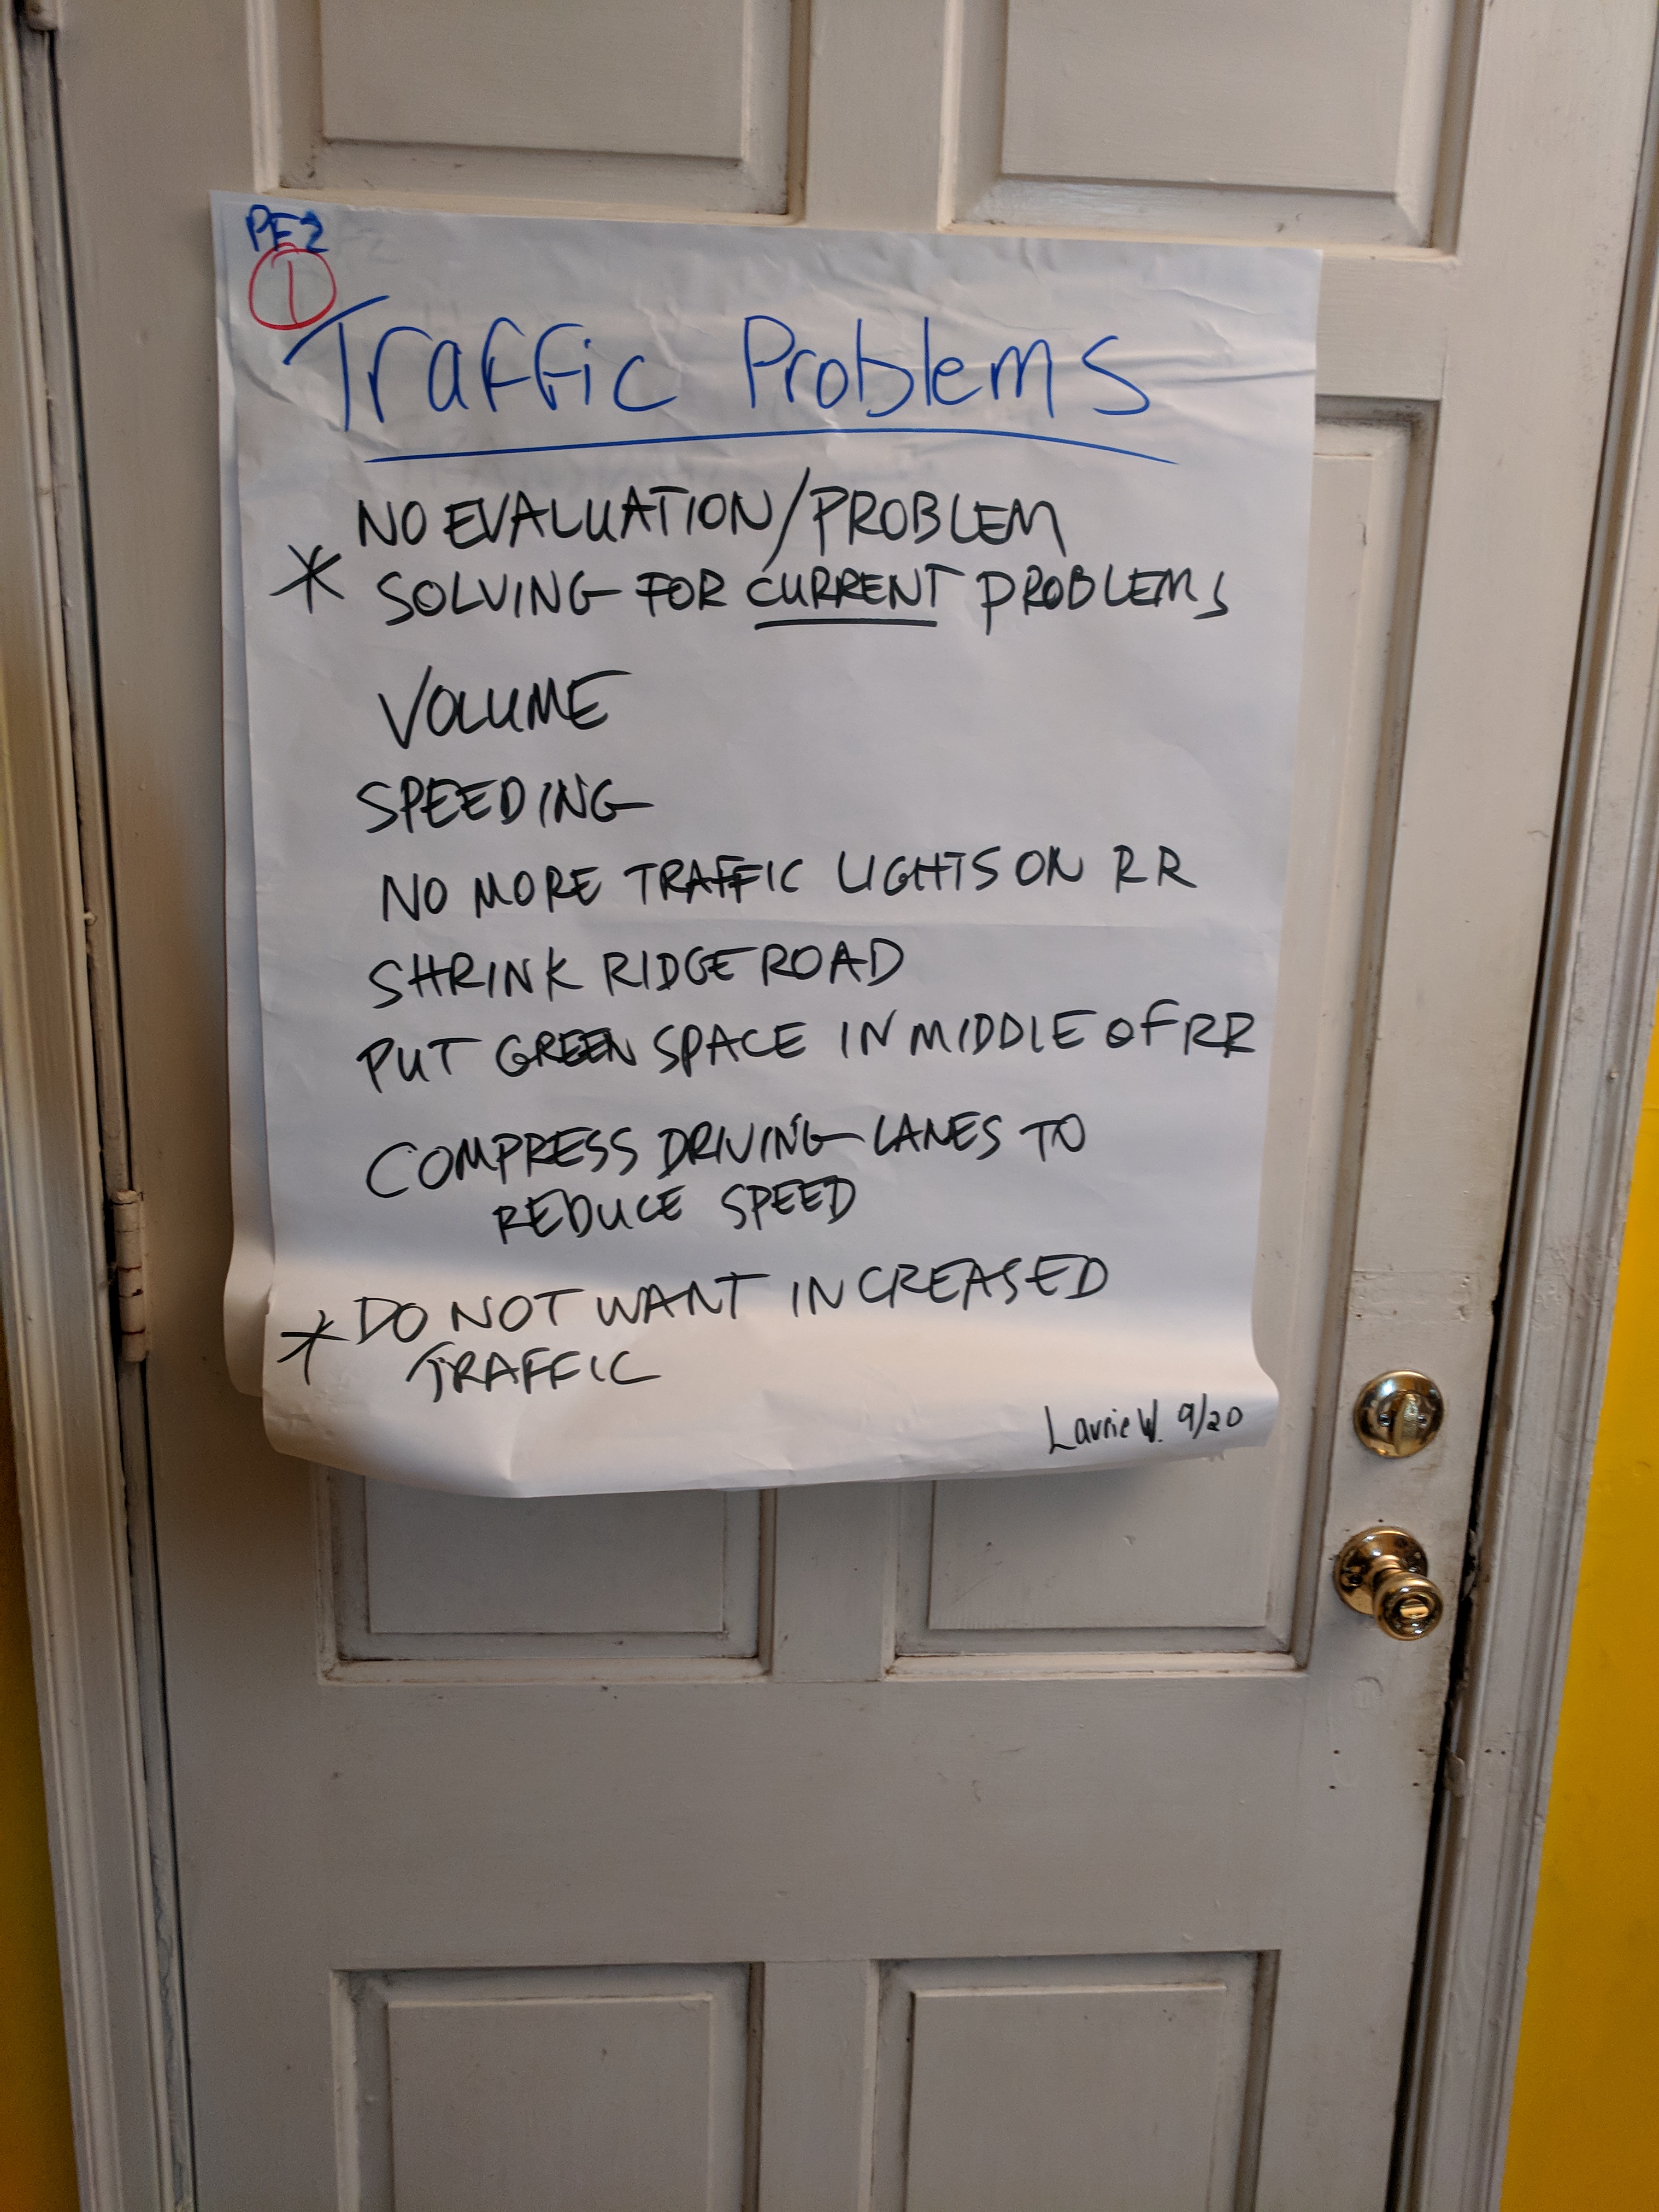 PF2
1
Traffic Problems
NO EVALUATION/PROBLEM
* SOLVING FOR CURRENT PROBLEMS
VOLUME
SPEEDING
NO MORE TRAFFIC LIGHTS ON RR
SHRINK RIDGE ROAD
PUT GREEN SPACE IN MIDDLE OF RR
COMPRESS DRIVING LANES TO
REDUCE SPEED
* DO NOT WANT INCREASED
TRAFFIC
Laurie W. 9/20